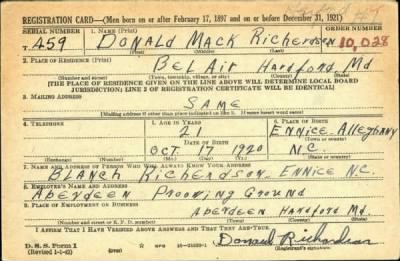 REGISTRATION CARD—(Men born on or after February 17, 1897 and on or before December 31, 1921)
SERIAL NUMBER 1. NAME (Print) ORDER NUMBER
T 459 DONALD MACK Richerdson 10,028
(First) (Middle) (Last)
2. PLACE OF RESIDENCE (Print)
BEL AIR Hardford, Md
(Number and street) (Town, township, village, or city) (County) (State)
[THE PLACE OF RESIDENCE GIVEN ON THE LINE ABOVE WILL DETERMINE LOCAL BOARD
JURISDICTION; LINE 2 OF REGISTRATION CERTIFICATE WILL BE IDENTICAL]
3. MAILING ADDRESS
SAME
[Mailing address if other than place indicated on line 2. If same insert word same]
4. TELEPHONE 5. AGE IN YEARS 6. PLACE OF BIRTH
21 ENNICE Alleghany
DATE OF BIRTH (Town or county)
OCT 17 1920 N.C.
(Exchange) (Number) (Mo.) (Day) (Yr.) (State or country)
7. NAME AND ADDRESS OF PERSON WHO WILL ALWAYS KNOW YOUR ADDRESS
BLANCH Richerdson ENNICE N.C.
8. EMPLOYER'S NAME AND ADDRESS
Aberdeen Prooning Ground
9. PLACE OF EMPLOYMENT OR BUSINESS
Aberdeen Handford Md.
(Number and street or R. F. D. number) (Town) (County) (State)
I AFFIRM THAT I HAVE VERIFIED ABOVE ANSWERS AND THAT THEY ARE TRUE.
D. S. S. Form 1 Donald Richardson
(Revised 1-1-42) (Registrant's signature)